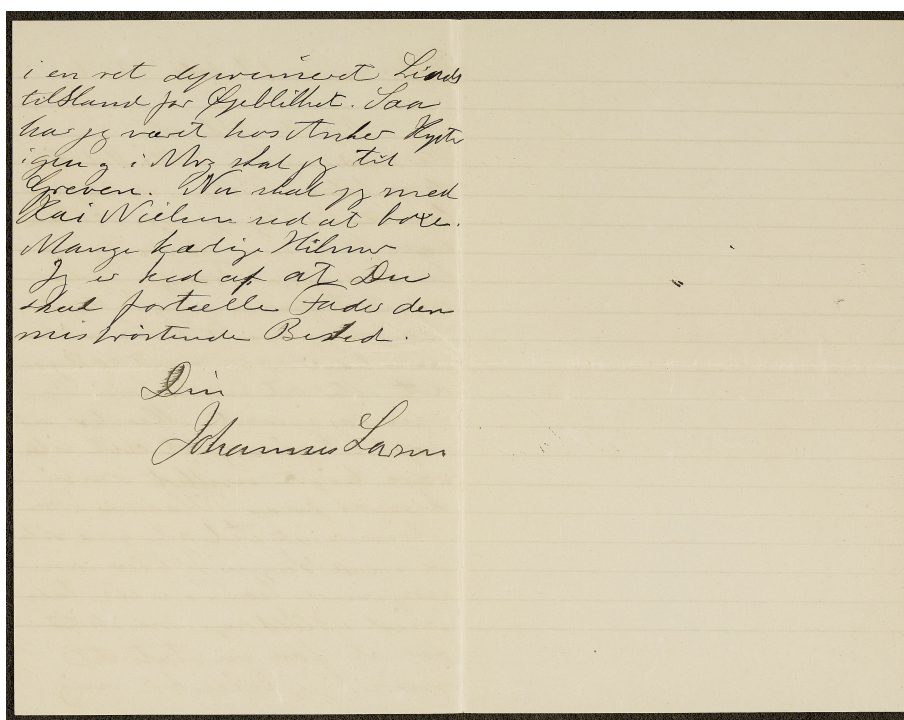 i en ret deprimeret Sinds
tilstand for Øjeblikket. Saa
har jeg været hos Anker Kyster
igen og i Mrg skal jeg til
Greven. Nu skal jeg med
Kai Nielsen ud at boxe.
Mange kærlige Hilsner
Jeg er ked af at Du
skal fortælle Fader den
mistrøstende Besked.
Din
Johannes Larsen